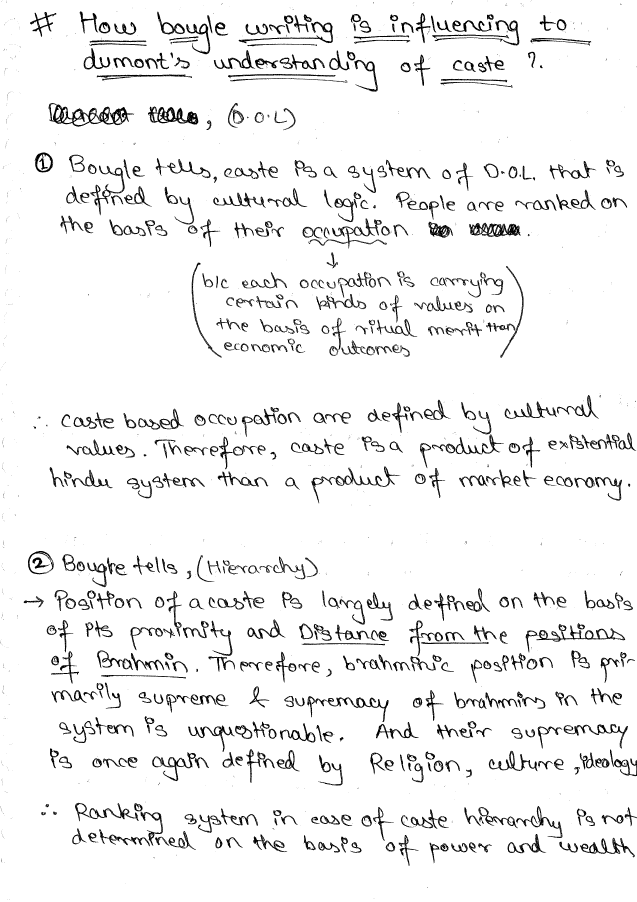 # How bougle writing is influencing to
dumont's understanding of caste ?.
, (D.O.L)
① Bougle tells, caste is a system of D.O.L. that is
defined by cultural logic. People are ranked on
the basis of their occupation .
↓
(b/c each occupation is carrying
certain kinds of values on
the basis of ritual merit than
economic outcomes)
∴ caste based occupation are defined by cultural
values. Therefore, caste is a product of existential
hindu system than a product of market economy.
② Bougle tells, (Hierarchy)
→ Position of a caste is largely defined on the basis
of its proximity and Distance from the positions
of Brahmin. Therefore, brahminic position is pri-
marily supreme & supremacy of brahmins in the
system is unquestionable. And their supremacy
is once again defined by Religion, culture, ideology
∴ Ranking system in case of caste hierarchy is not
determined on the basis of power and wealth